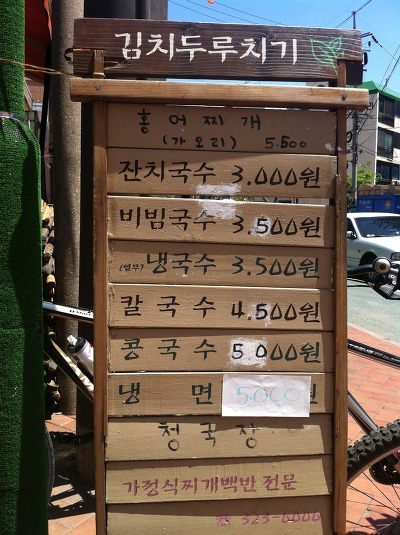 김치두루치기
홍어찌개
(가오리) 5.500
잔치국수 3.000원
비빔국수 3.500원
(열무) 냉국수 3.500원
칼국수 4.500원
콩국수 5.000원
냉면 5.000원
청국장
가정식찌개백반 전문
☎ 323-6000